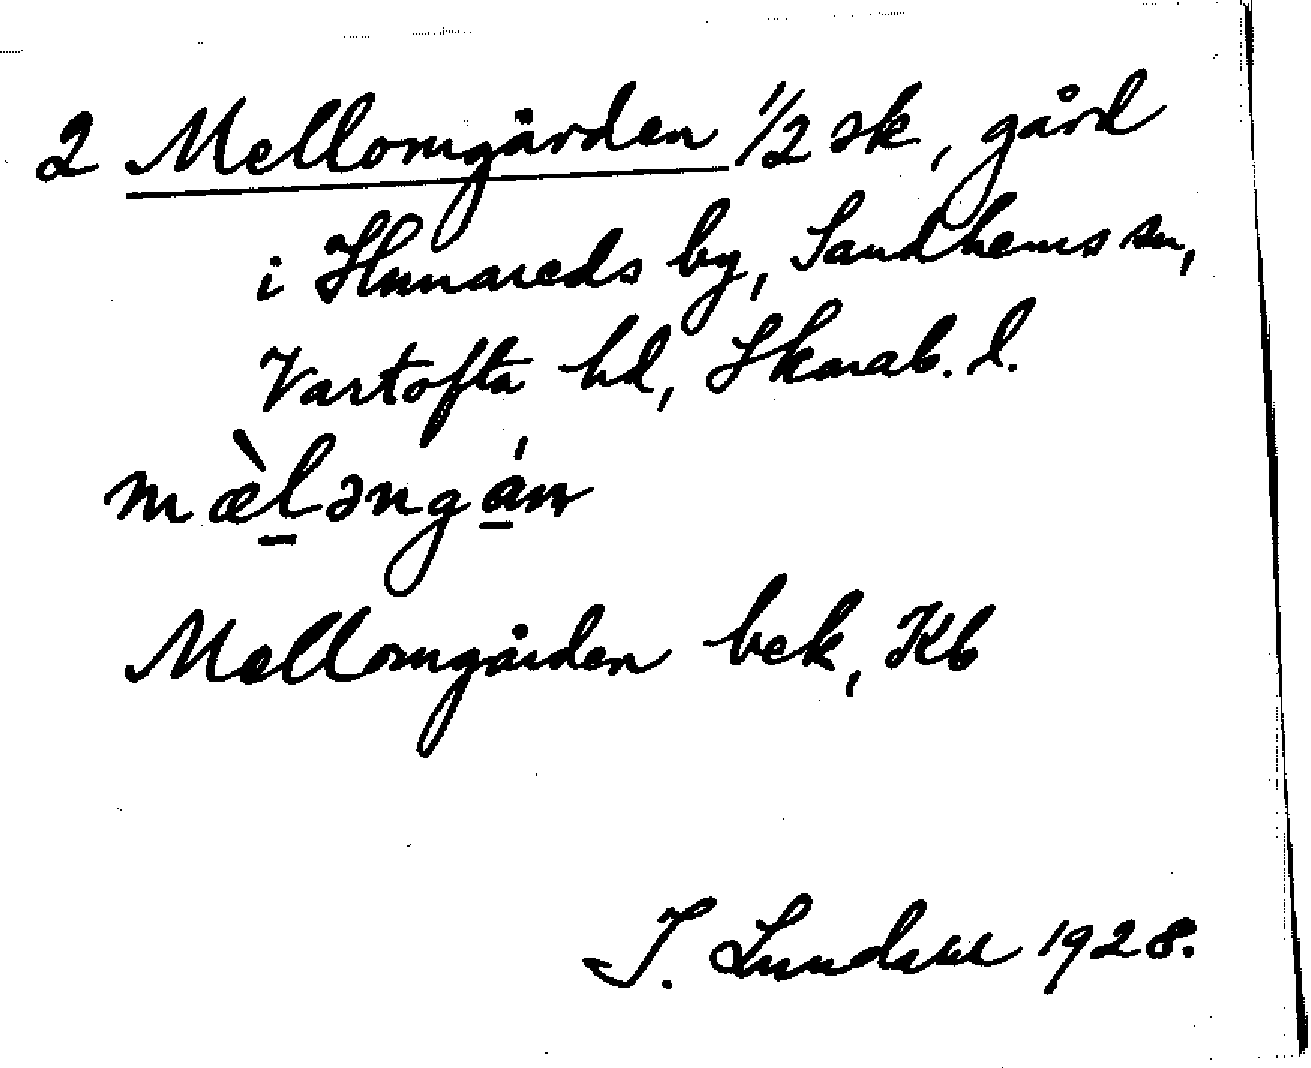 2 Mellomgården 1/2 sk, gård
i Hunnareds by, Sandhems sn,
Vartofta hd, Skarab. l.
mæ̀l̠əngá̠n
Mellomgården bek, Kb
I. Lundahl 1928.